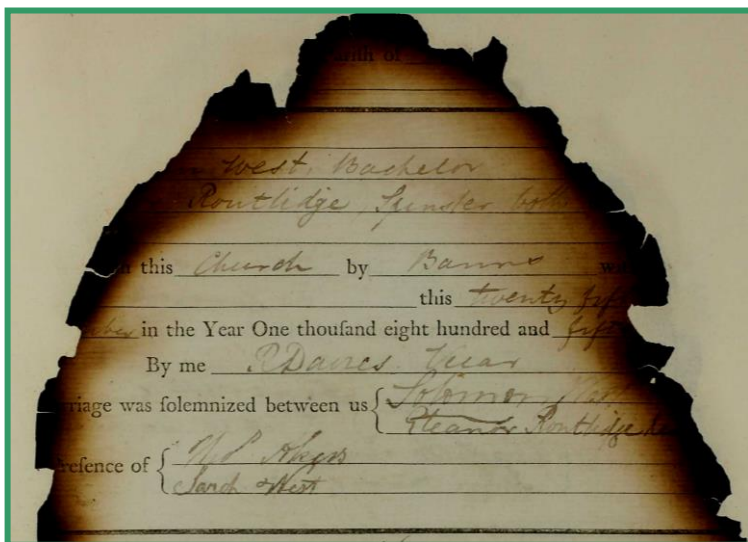 arish of
West, Bachelor
Routlidge, Spinster both
this Church by Banns
this twenty
in the Year One thouſand eight hundred and
By me Davies Vicar
rriage was ſolemnized between us { Solomon
Eleanor Routlidge
reſence of {
Sarah West